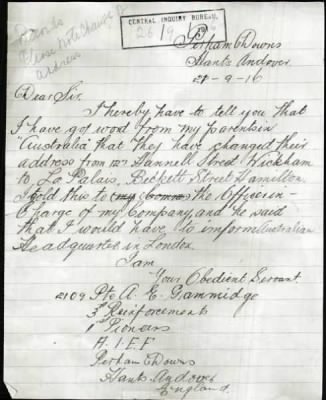 Records
Please note change of
address
CENTRAL INQUIRY BUREAU.
26 / 9 / 16
Perham Downs
Hants Andover
21-9-16
Dear Sir.
I hereby have to tell you that
I have got word from my parents in
"Australia" that they have changed their
address from Hannell Street Wickham
to La Palais, Beckett Street Hamilton.
I told this to the Officer in
Charge of my Company, and he said
that I would have to imform Australian
Headquarters in London.
I am
Your Obedient Servant.
2109 Pte A. E. Gammidge
3rd Reinforcements
1st Pioneers
A.I.E.F
Perham Downs
Hants. Andover
England.